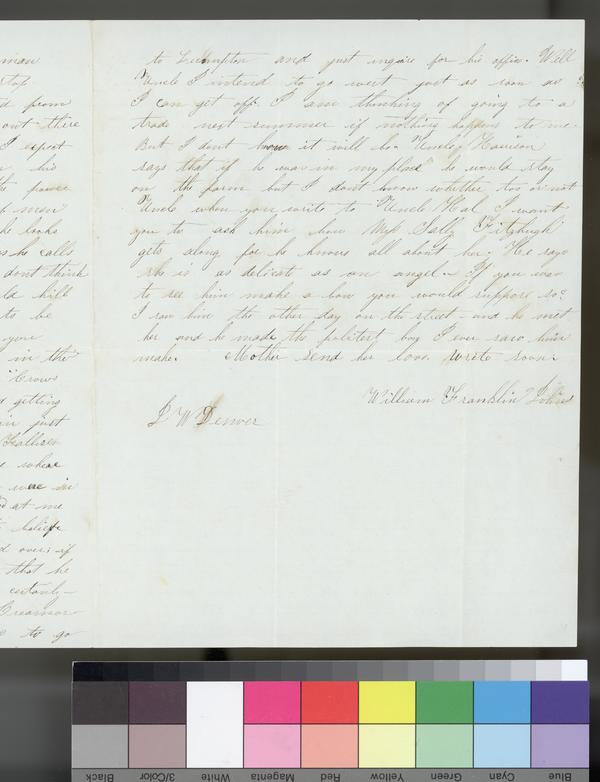 man
stop
d from
out there
I expect
his
the power
men
he looks
as he calls
dont think
ld kill
to be
your
in the
"Crow
d getting
in just
where
were in
d at me
believe
d over; if
that he
certainly
to go
to Lecompton and just inquire for his office. Well
Uncle I intend to go west just as soon as
I can git off. I am thinking of going to a
trade next summer if nothing happens to me
But I dont know it will be. "Uncle" Harrison
says that if he was in my place he would stay
on the farm but I dont know whether too or not
Uncle when you write to Uncle Hal I want
you to ask him how Miss Sally Fitzhugh
gets along for he knows all about her. He says
she is as delicate as an angel. If you was
to see him make a bow you would suppose so.
I saw him the other day on the street and he met
her and he made the politest boy I ever saw him
make. Mother send her love. Write soon.
William Franklin
J W Denver
Black
3/Color
White
Magenta
Red
Yellow
Green
Cyan
Blue